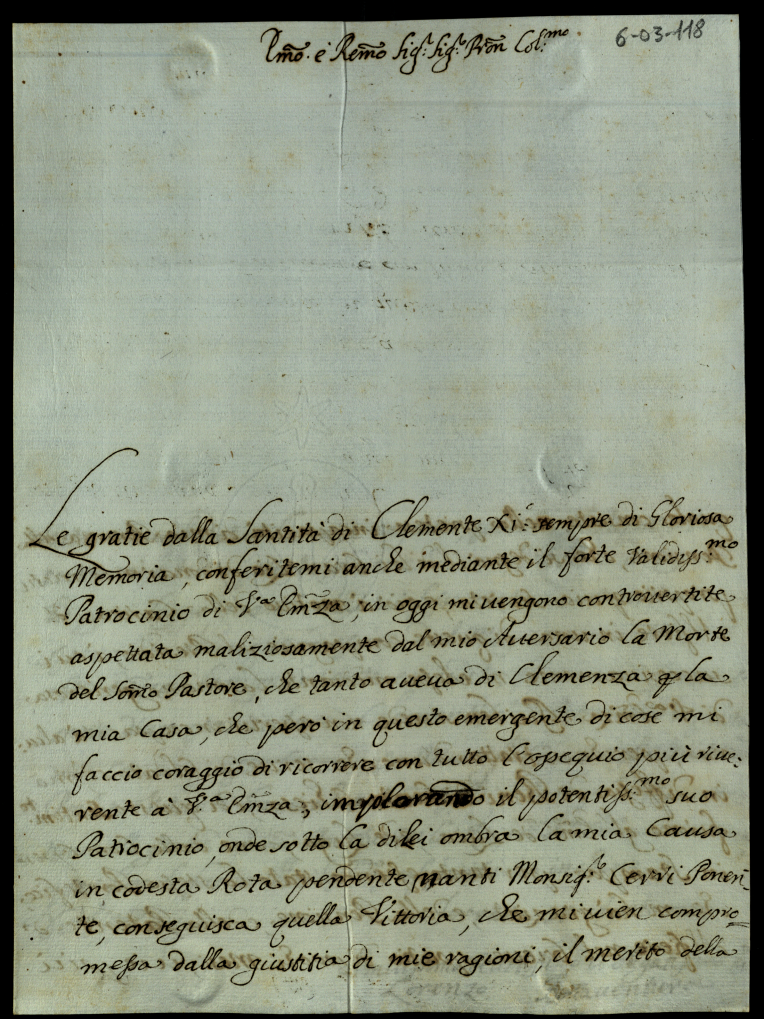 Emõ. e Remõ Sig.r Sig.r Pron Col.mo
6-03-118
Le gratie dalla Santità di Clemente XI: sempre di Gloriosa
Memoria, conferitemi anche mediante il forte Validiss.mo
Patrocinio di V.a Em̃za, in oggi mi vengono controvertite
aspettata maliziosamente dal mio Aversario la Morte
del Som̃o Pastore, che tanto aveva di Clemenza p la
mia Casa, che però in questo emergente di cose mi
faccio coraggio di ricorrere con tutto l'ossequio più rive:
rente à V.a Em̃za, implorando il potentiss.mo suo
Patrocinio, onde sotto la di lei ombra la mia Causa
in codesta Rota pendente nanti Monsig.r Cerri Ponen-
te, conseguisca quella Vittoria, che mi vien compro=
messa dalla giustitia di mie ragioni, il merito della